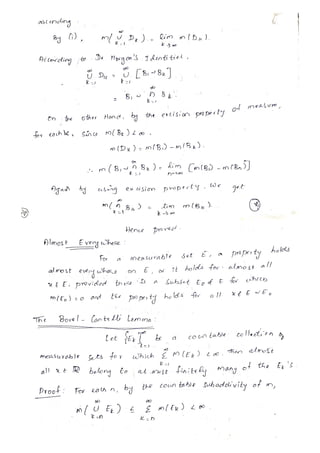 ascending.
By (i), m( ∞∪k=1 Dk ) = lim k→∞ m(Dk).
According to De Morgan's Identities,
∞∪k=1 Dk = ∞∪k=1 [B1 ~ Bk]
= B1 ~ ∞∩k=1 Bk.
On the other Hand, by the excision property of measure,
for each k, since m(Bk) < ∞.
m(Dk) = m(B1) - m(Bk).
∴ m(B1 ~ ∞∩k=1 Bk) = lim n→∞ [m(B1) - m(Bn)]
Again by using excision property. we get
m( ∞∩k=1 Bk ) = lim k→∞ m(Bk).
Hence proved.
Almost Everywhere:
For a measurable set E, a property holds
almost everywhere on E, or it holds for almost all
x ∈ E, provided there is a subset E0 of E for which
m(E0) = 0 and the property holds for all x ∈ E ~ E0
The Borel - Cantelli Lemma:
Let {Ek}∞k=1 be a countable collection of
measurable sets for which ∞Σk=1 m(Ek) < ∞. Then almost
all x ∈ R belong to at most finitely many of the Ek's.
Proof: For each n, by the countable subaddivity of m,
m( ∞∪k=n Ek) ≤ ∞Σk=n m(Ek) < ∞.